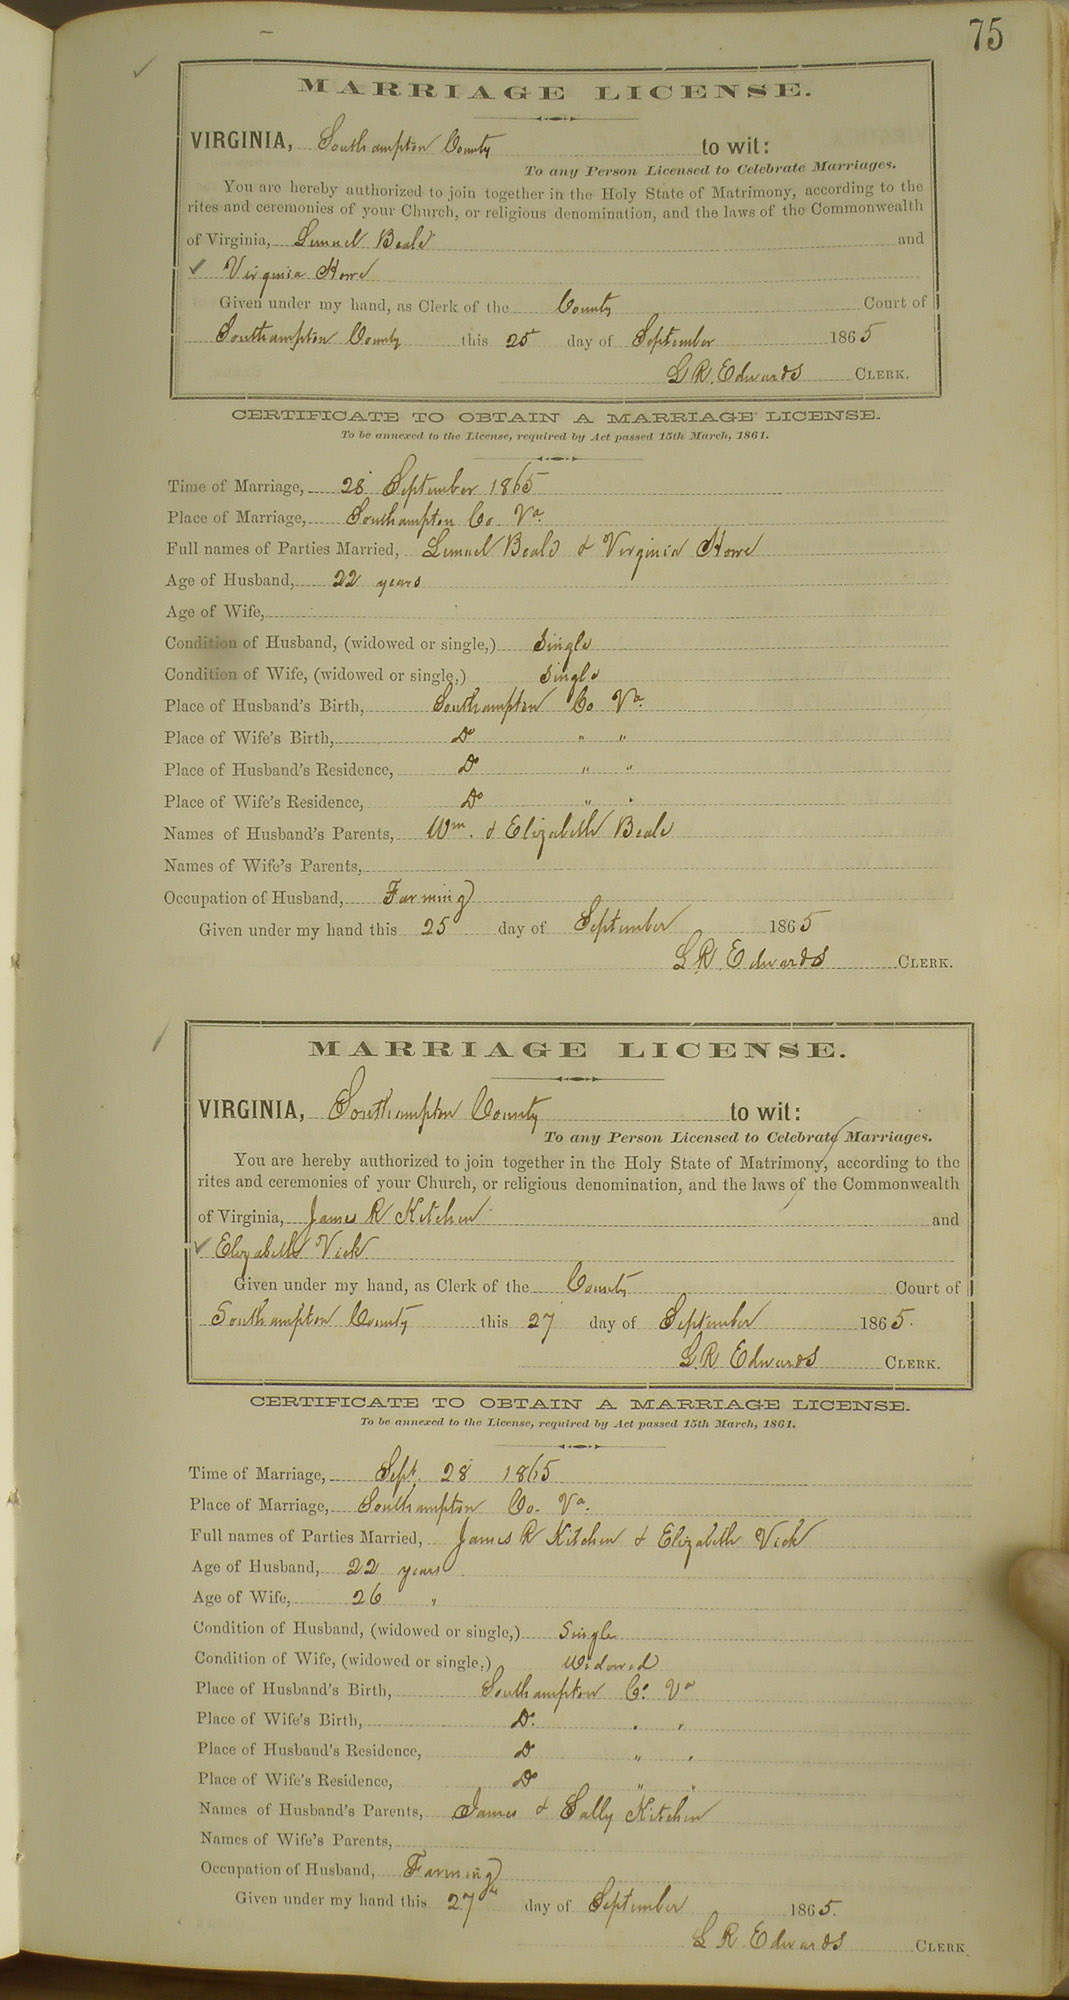 75
MARRIAGE LICENSE.
VIRGINIA, Southampton County to wit:
To any Person Licensed to Celebrate Marriages.
You are hereby authorized to join together in the Holy State of Matrimony, according to the
rites and ceremonies of your Church, or religious denomination, and the laws of the Commonwealth
of Virginia, Lemuel Beale and
✓ Virginia Howe
Given under my hand, as Clerk of the County Court of
Southampton County this 25 day of September 1865
L R. Edwards CLERK.
CERTIFICATE TO OBTAIN A MARRIAGE LICENSE.
To be annexed to the License, required by Act passed 15th March, 1861.
Time of Marriage, 28 September 1865
Place of Marriage, Southampton Co. Va.
Full names of Parties Married, Lemuel Beale & Virginia Howe
Age of Husband, 22 years
Age of Wife,
Condition of Husband, (widowed or single,) Single
Condition of Wife, (widowed or single,) Single
Place of Husband's Birth, Southampton Co Va.
Place of Wife's Birth, Do " "
Place of Husband's Residence, Do " "
Place of Wife's Residence, Do " "
Names of Husband's Parents, Wm. & Elizabeth Beale
Names of Wife's Parents,
Occupation of Husband, Farming
Given under my hand this 25 day of September 1865
L R. Edwards CLERK.
MARRIAGE LICENSE.
VIRGINIA, Southampton County to wit:
To any Person Licensed to Celebrate Marriages.
You are hereby authorized to join together in the Holy State of Matrimony, according to the
rites and ceremonies of your Church, or religious denomination, and the laws of the Commonwealth
of Virginia, James R Kitchen and
✓ Elizabeth Vick
Given under my hand, as Clerk of the County Court of
Southampton County this 27 day of September 1865.
L. R Edwards CLERK.
CERTIFICATE TO OBTAIN A MARRIAGE LICENSE.
To be annexed to the License, required by Act passed 15th March, 1861.
Time of Marriage, Sept. 28 1865
Place of Marriage, Southampton Co. Va.
Full names of Parties Married, James R Kitchen & Elizabeth Vick
Age of Husband, 22 years
Age of Wife, 26 "
Condition of Husband, (widowed or single,) Single
Condition of Wife, (widowed or single,) Widowed
Place of Husband's Birth, Southampton Co Va
Place of Wife's Birth, Do. " "
Place of Husband's Residence, Do " "
Place of Wife's Residence, Do " "
Names of Husband's Parents, James & Sally Kitchen
Names of Wife's Parents,
Occupation of Husband, Farming
Given under my hand this 27th day of September 1865.
L R Edwards CLERK.